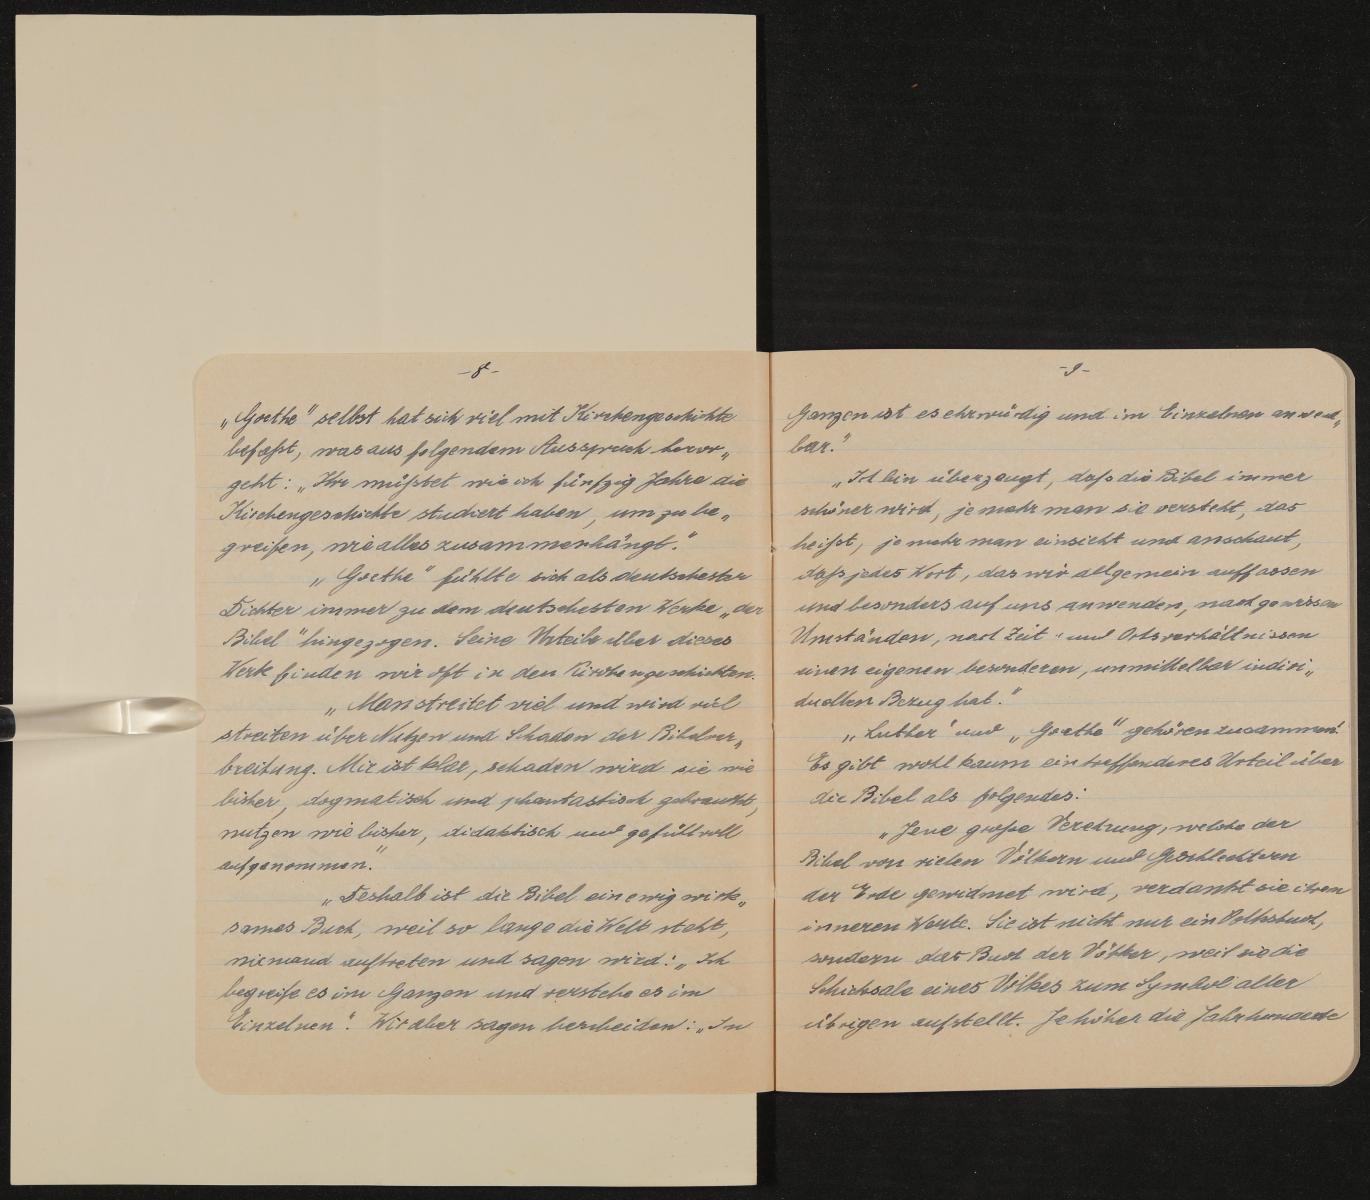 -8-
„Goethe" selbst hat sich viel mit Kirchengeschichte
befaßt, was aus folgendem Ausspruch hervor„
geht: „Ihr müßtet wie ich fünfzig Jahre die
Kirchengeschichte studiert haben, um zu be„
greifen, wie alles zusammenhängt."
„Goethe" fühlte sich als deutschester
Dichter immer zu dem deutschesten Werke „der
Bibel" hingezogen. Seine Urteile über dieses
Werk finden wir oft in den Kirchengeschichten.
„Man streitet viel und wird viel
streiten über Nutzen und Schaden der Bibelver„
breitung. Mir ist klar, schaden wird sie wie
bisher, dogmatisch und phantastisch gebraucht,
nutzen wie bisher, didaktisch und gefühlvoll
aufgenommen."
„Deshalb ist die Bibel ein ewig wirk„
sames Buch, weil so lange die Welt steht,
niemand auftreten und sagen wird: „Ich
begreife es im Ganzen und verstehe es im
Einzelnen". Wir aber sagen bescheiden: „Im
-9-
Ganzen ist es ehrwürdig und im Einzelnen anwend„
bar."
„Ich bin überzeugt, daß die Bibel immer
schöner wird, je mehr man sie versteht, das
heißt, je mehr man einsieht und anschaut,
daß jedes Wort, das wir allgemein auffassen
und besonders auf uns anwenden, nach gewissen
Umständen, nach Zeit- und Ortsverhältnissen
einen eigenen besonderen, unmittelbar indivi„
duellen Bezug hat."
„Luther" und „Goethe" gehören zusammen!
Es gibt wohl kaum ein treffenderes Urteil über
die Bibel als folgendes:
„Jene große Verehrung, welche der
Bibel von vielen Völkern und Geschlechtern
der Erde gewidmet wird, verdankt sie ihrem
inneren Werte. Sie ist nicht nur ein Volksbuch,
sondern das Buch der Völker, weil sie die
Schicksale eines Volkes zum Symbol aller
übrigen aufstellt. Je höher die Jahrhunderte